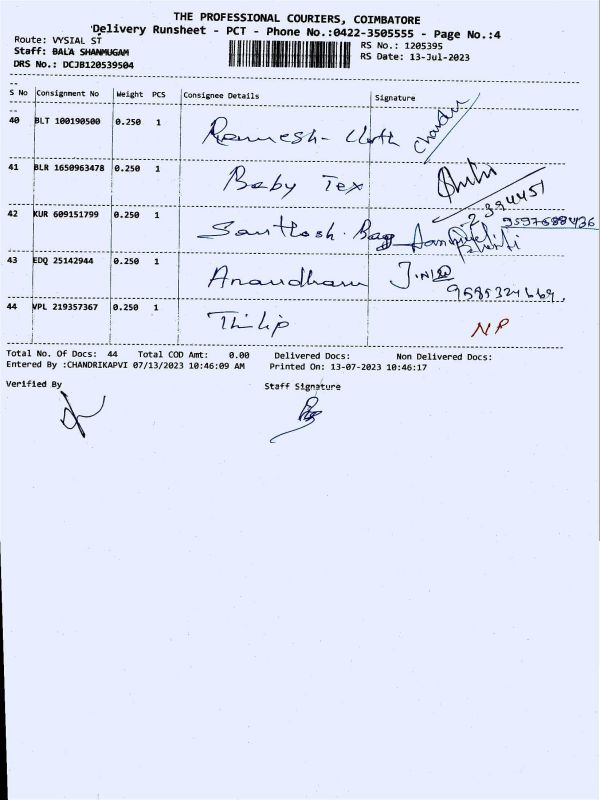 THE PROFESSIONAL COURIERS, COIMBATORE
Delivery Runsheet - PCT - Phone No.:0422-3505555 - Page No.:4
Route: VYSIAL ST
RS No.: 1205395
Staff: BALA SHANMUGAM
RS Date: 13-Jul-2023
DRS No.: DCJB120539504
S No Consignment No Weight PCS Consignee Details Signature
40 BLT 100190500 0.250 1 Ramesh- Cloth Chandru
41 BLR 1650963478 0.250 1 Baby Tex
2394451
42 KUR 609151799 0.250 1 Santhosh. Bag 9597688436
43 EDQ 25142944 0.250 1 Anandham
9585324669.
44 VPL 219357367 0.250 1 Thilip NP
Total No. Of Docs: 44 Total COD Amt: 0.00 Delivered Docs: Non Delivered Docs:
Entered By :CHANDRIKAPVI 07/13/2023 10:46:09 AM Printed On: 13-07-2023 10:46:17
Verified By Staff Signature